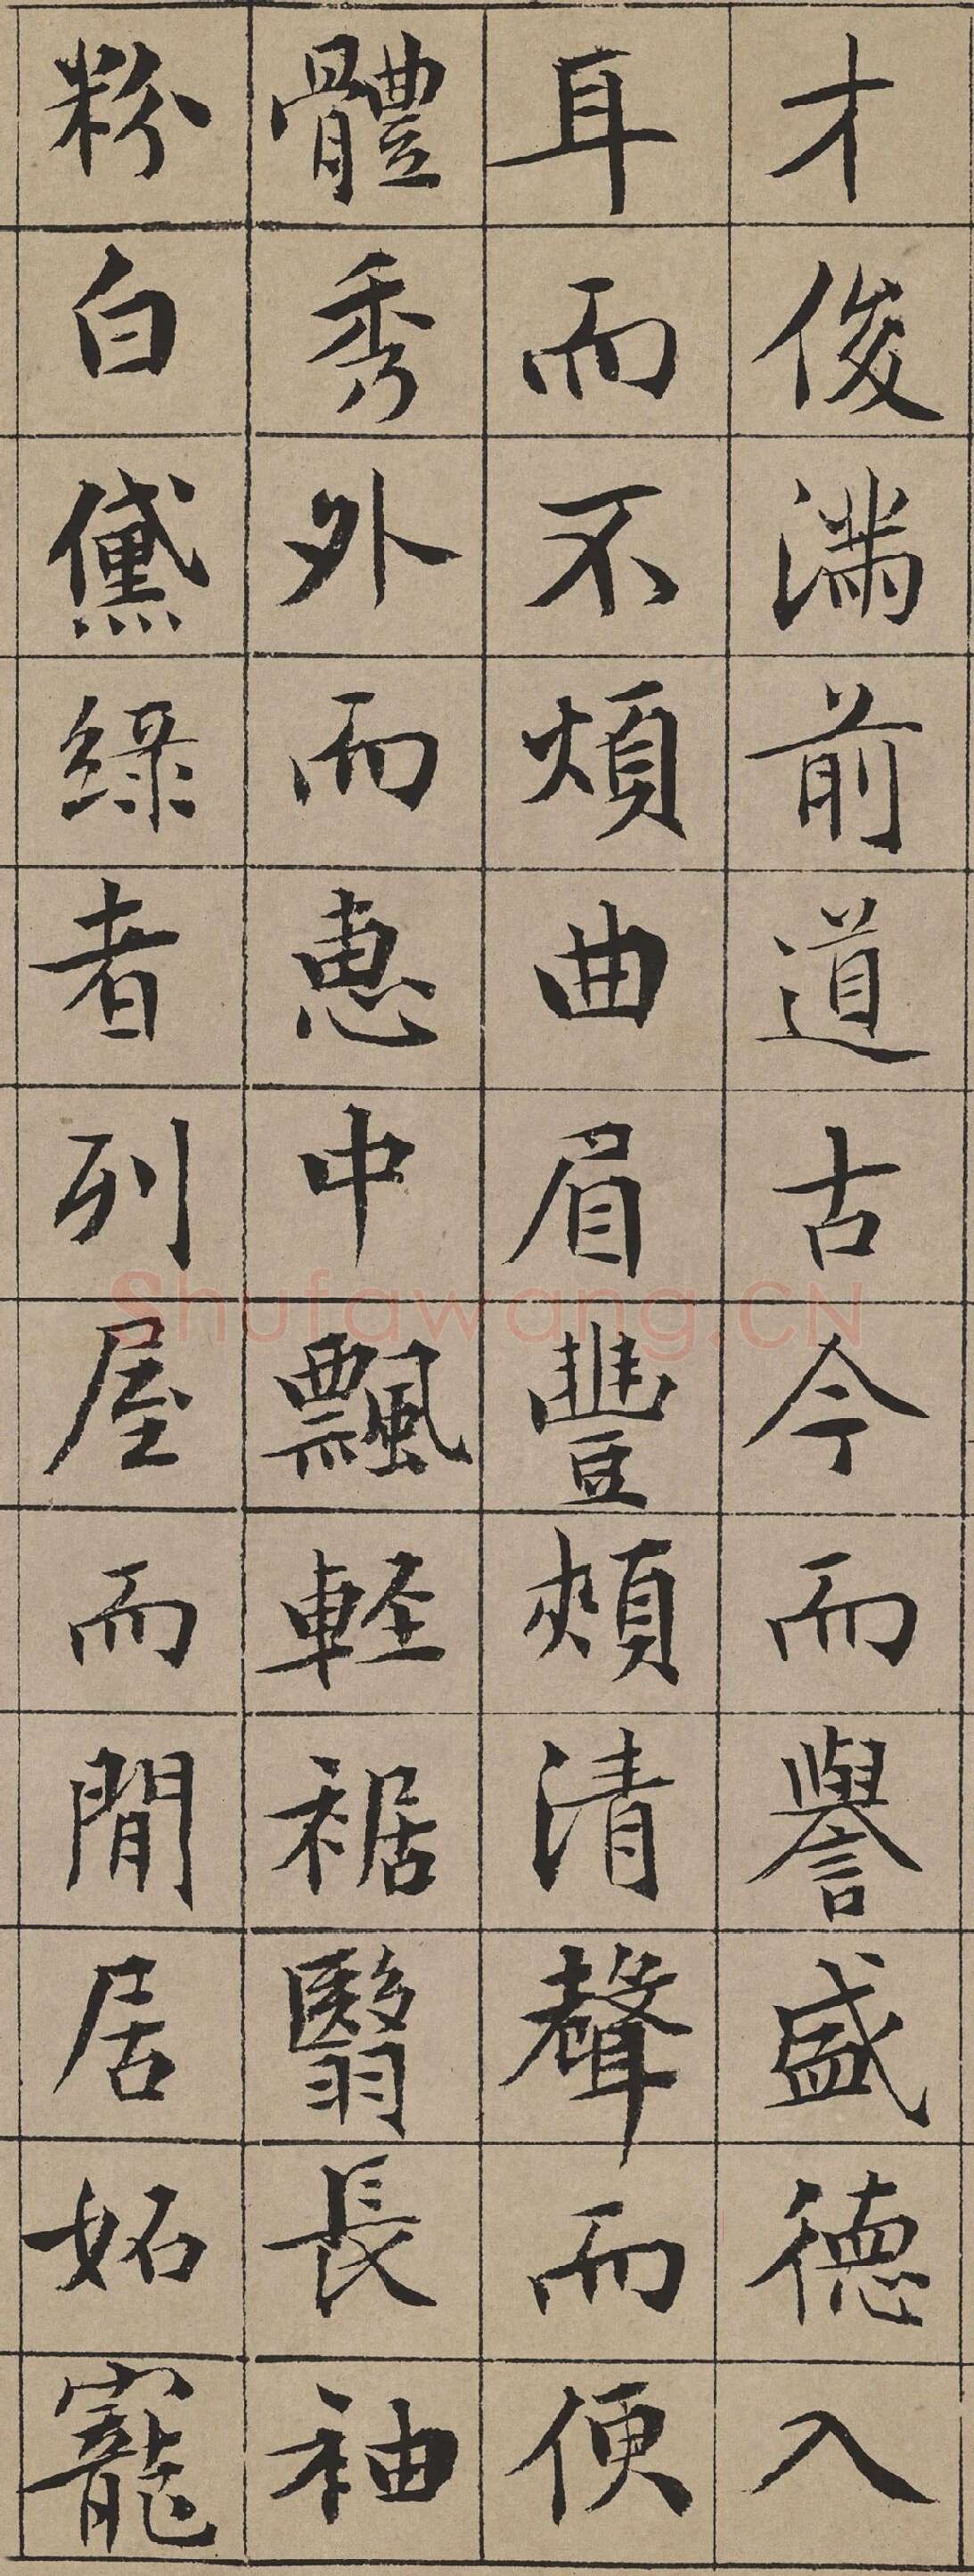 才俊滿前道古今而譽盛德入
耳而不煩曲眉豐頰清聲而便
體秀外而惠中飄輕裾翳長袖
粉白黛綠者列屋而閒居妬寵
Shufawang.CN